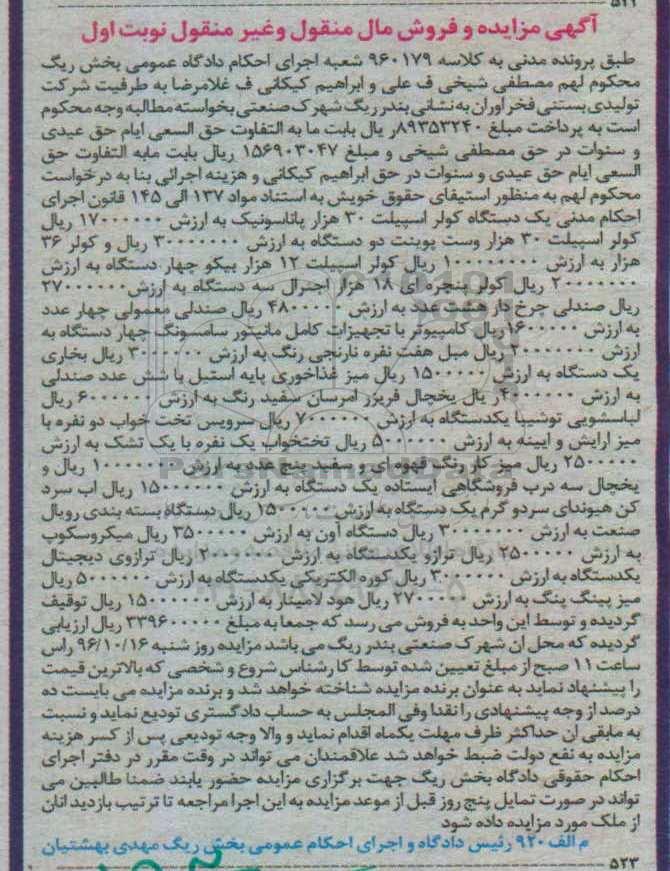 ۵۲۲
آگهی مزایده و فروش مال منقول وغیر منقول نوبت اول
طبق پرونده مدنی به کلاسه ۹۶۰۱۷۹ شعبه اجرای احکام دادگاه عمومی بخش ریگ
محکوم لهم مصطفی شیخی ف علی و ابراهیم کیکانی ف غلامرضا به طرفیت شرکت
تولیدی بستنی فخر اوران به نشانی بندر ریگ شهرک صنعتی بخواسته مطالبه وجه محکوم
است به پرداخت مبلغ ۸۹۳۵۳۲۴۰ر یال بابت ما به التفاوت حق السعی ایام حق عیدی
و سنوات در حق مصطفی شیخی و مبلغ ۱۵۶۹۰۳۰۴۷ ریال بابت مابه التفاوت حق
السعی ایام حق عیدی و سنوات در حق ابراهیم کیکانی و هزینه اجرائی بنا به درخواست
محکوم لهم به منظور استیفای حقوق خویش به استناد مواد ۱۳۷ الی ۱۴۵ قانون اجرای
احکام مدنی یک دستگاه کولر اسپیلت ۳۰ هزار پاناسونیک به ارزش ۱۷۰۰۰۰۰۰ ریال
کولر اسپیلت ۳۰ هزار وست پوینت دو دستگاه به ارزش ۳۰۰۰۰۰۰۰ ریال و کولر ۳۶
هزار به ارزش ۱۰۰۰۰۰۰۰ ریال کولر اسپیلت ۱۲ هزار بیکو چهار دستگاه به ارزش
۲۰۰۰۰۰۰۰ ریال کولر پنجره ای ۱۸ هزار اجنرال سه دستگاه به ارزش ۲۷۰۰۰۰۰۰
ریال صندلی چرخ دار هشت عدد به ارزش ۴۸۰۰۰۰۰ ریال صندلی معمولی چهار عدد
به ارزش ۱۶۰۰۰۰۰ ریال کامپیوتر با تجهیزات کامل مانیتور سامسونگ چهار دستگاه به
ارزش ۲۰۰۰۰۰۰۰ ریال مبل هفت نفره نارنجی رنگ به ارزش ۳۰۰۰۰۰۰ ریال بخاری
یک دستگاه به ارزش ۱۵۰۰۰۰۰ ریال میز غذاخوری پایه استیل با شش عدد صندلی
به ارزش ۴۰۰۰۰۰۰ر یال یخچال فریزر امرسان سفید رنگ به ارزش ۶۰۰۰۰۰۰ ریال
لباسشویی توشیبا یکدستگاه به ارزش ۷۰۰۰۰۰۰ ریال سرویس تخت خواب دو نفره با
میز ارایش و ایینه به ارزش ۵۰۰۰۰۰۰ ریال تختخواب یک نفره با یک تشک به ارزش
۲۵۰۰۰۰۰ ریال میز کار رنگ قهوه ای و سفید پنج عدد به ارزش ۱۰۰۰۰۰۰۰ ریال و
یخچال سه درب فروشگاهی ایستاده یک دستگاه به ارزش ۱۵۰۰۰۰۰۰ ریال اب سرد
کن هیوندای سردو گرم یک دستگاه به ارزش ۱۵۰۰۰۰۰ ریال دستگاه بسته بندی رویال
صنعت به ارزش ۳۰۰۰۰۰۰۰ ریال دستگاه آون به ارزش ۳۵۰۰۰۰۰۰ ریال میکروسکوپ
به ارزش ۲۵۰۰۰۰۰۰ ریال ترازو یکدستگاه به ارزش ۲۰۰۰۰۰۰ ریال ترازوی دیجیتال
یکدستگاه به ارزش ۳۰۰۰۰۰۰ ریال کوره الکتریکی یکدستگاه به ارزش ۵۰۰۰۰۰۰ ریال
میز پینگ پنگ به ارزش ۲۷۰۰۰۰۰ ریال هود لامینار به ارزش ۱۵۰۰۰۰۰۰ ریال توقیف
گردیده و توسط این واحد به فروش می رسد که جمعا به مبلغ ۳۳۹۶۰۰۰۰۰ ریال ارزیابی
گردیده که محل ان شهرک صنعتی بندر ریگ می باشد مزایده روز شنبه ۹۶/۱۰/۱۶ راس
ساعت ۱۱ صبح از مبلغ تعیین شده توسط کارشناس شروع و شخصی که بالاترین قیمت
را پیشنهاد نماید به عنوان برنده مزایده شناخته خواهد شد و برنده مزایده می بایست ده
درصد از وجه پیشنهادی را نقدا وفی المجلس به حساب دادگستری تودیع نماید و نسبت
به مابقی ان حداکثر ظرف مهلت یکماه اقدام نماید و والا وجه تودیعی پس از کسر هزینه
مزایده به نفع دولت ضبط خواهد شد علاقمندان می تواند در وقت مقرر در دفتر اجرای
احکام حقوقی دادگاه بخش ریگ جهت برگزاری مزایده حضور یابند ضمنا طالبین می
تواند در صورت تمایل پنج روز قبل از موعد مزایده به این اجرا مراجعه تا ترتیب بازدید انان
از ملک مورد مزایده داده شود
م الف ۹۲۰ رئیس دادگاه و اجرای احکام عمومی بخش ریگ مهدی بهشتیان
۵۲۳